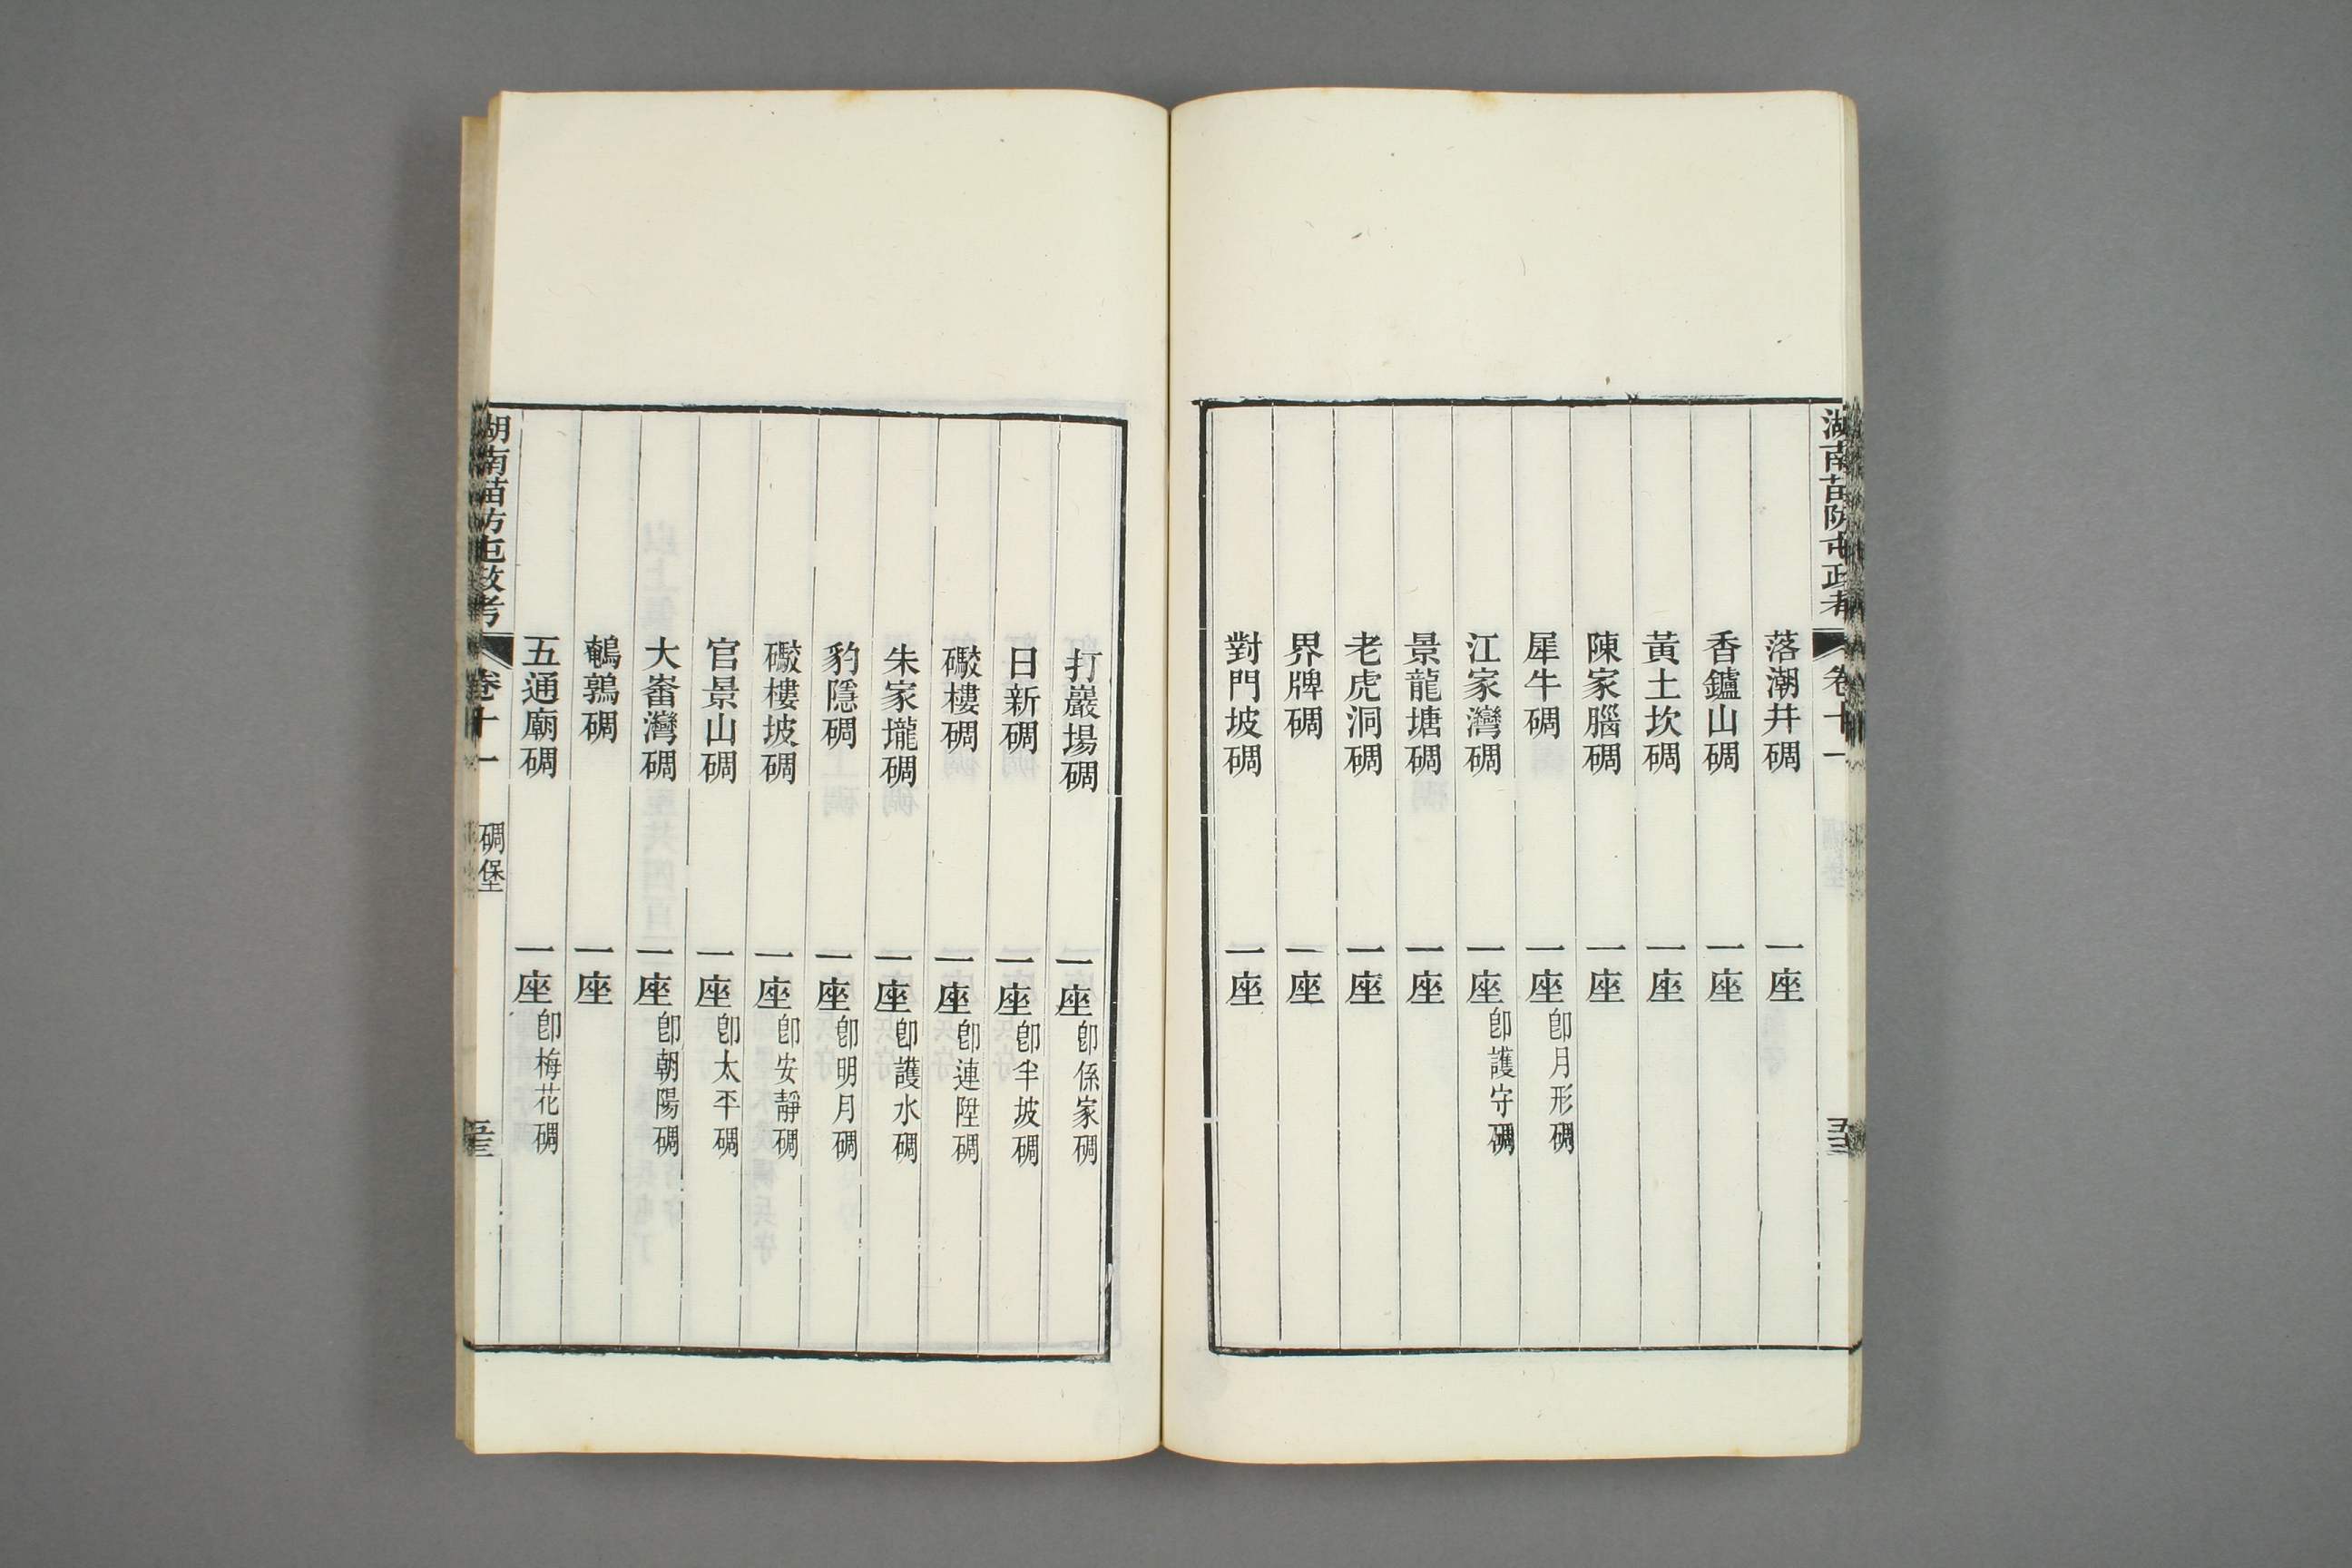 湖南苗防屯政考 卷十一
落潮井碉 一座
香鑪山碉 一座
黃土坎碉 一座
陳家腦碉 一座
犀牛碉 一座 卽月形碉
江家灣碉 一座 卽護守碉
景龍塘碉 一座
老虎洞碉 一座
界牌碉 一座
對門坡碉 一座
打巖場碉 一座 卽係家碉
日新碉 一座 卽半坡碉
礮樓碉 一座 卽連陞碉
朱家壠碉 一座 卽護水碉
豹隱碉 一座 卽明月碉
礮樓坡碉 一座 卽安靜碉
官景山碉 一座 卽太平碉
大畬灣碉 一座 卽朝陽碉
鵪鶉碉 一座
五通廟碉 一座 卽梅花碉
湖南苗防屯政考 卷十一 碉堡